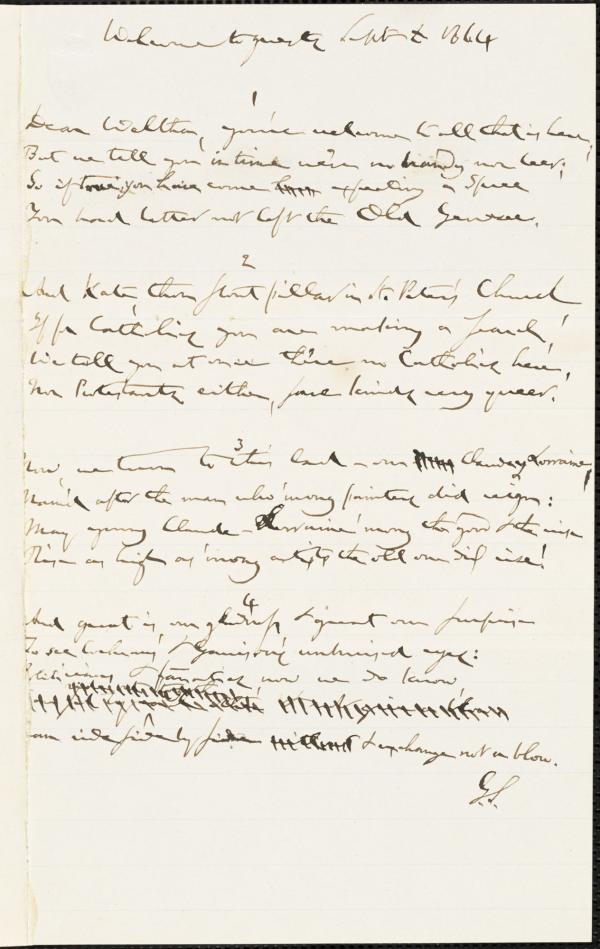 Welcome to guests Sept 8 1864
1
Dear Walther, you're welcome to all that is here;
But we tell you in time we've no brandy nor beer;
So if you have come expecting a Spree
You had better not left the Old Genesee.
2
And Kate, thou stout pillar in St. Peter's Church
If for Catholics you are making a search,
We tell you at once there no Catholics here,
Nor Protestants either, save kinds very queer.
3
Now, we turn to this lad - our Claude Lorraine,
Nam'd after the man who 'mong painters did reign:
May young Claude Lorraine 'mong the good & the wise
Rise as high as 'mong artists the old one did rise!
4
And great is our gladness & great our surprise
To see & Garrison's unbruised eyes:
now we do know
ride side by side & exchange not a blow.
G.S.